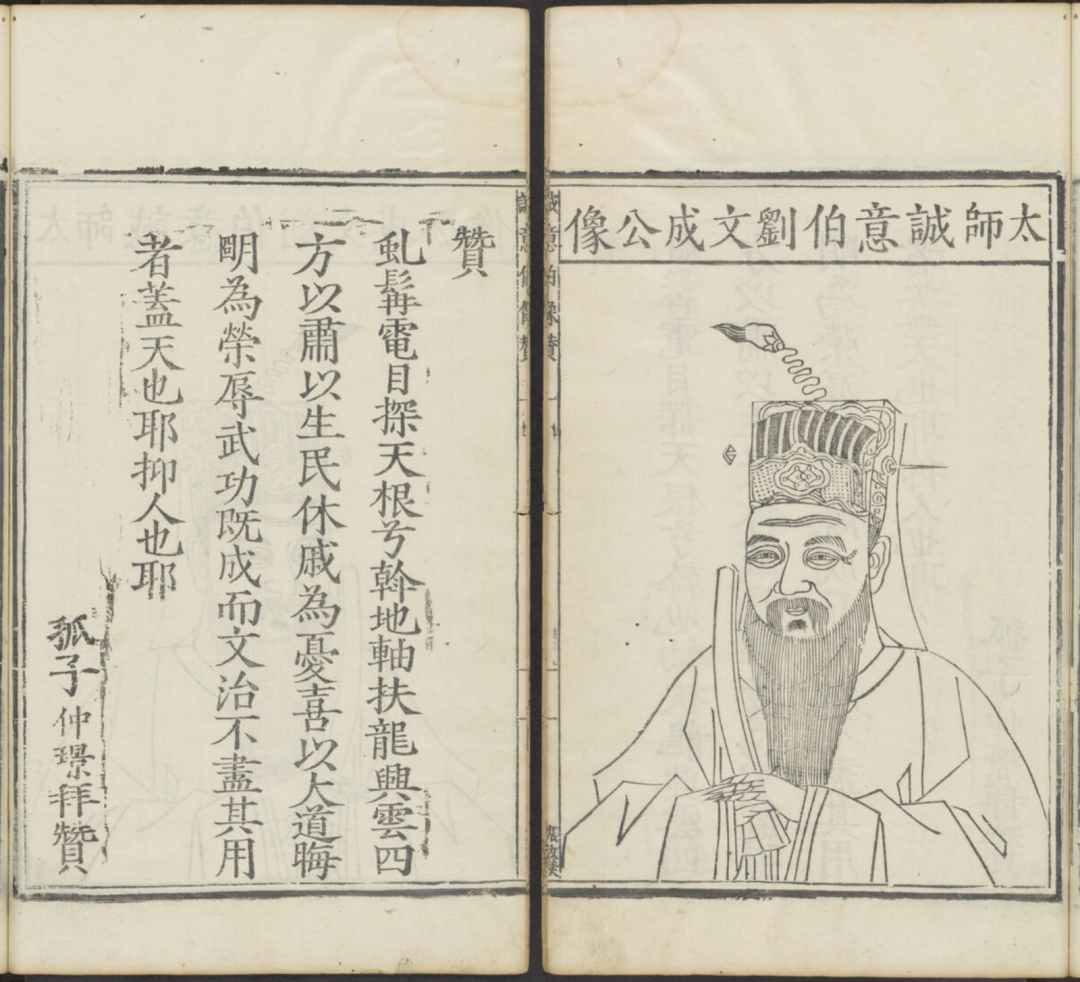 太師誠意伯劉文成公像
誠意伯像贊
贊
虬髯電目探天根兮斡地軸扶龍興雲四
方以肅以生民休戚為憂喜以大道晦
明為榮辱武功既成而文治不盡其用
者蓋天也耶抑人也耶
孤子仲璟拜贊